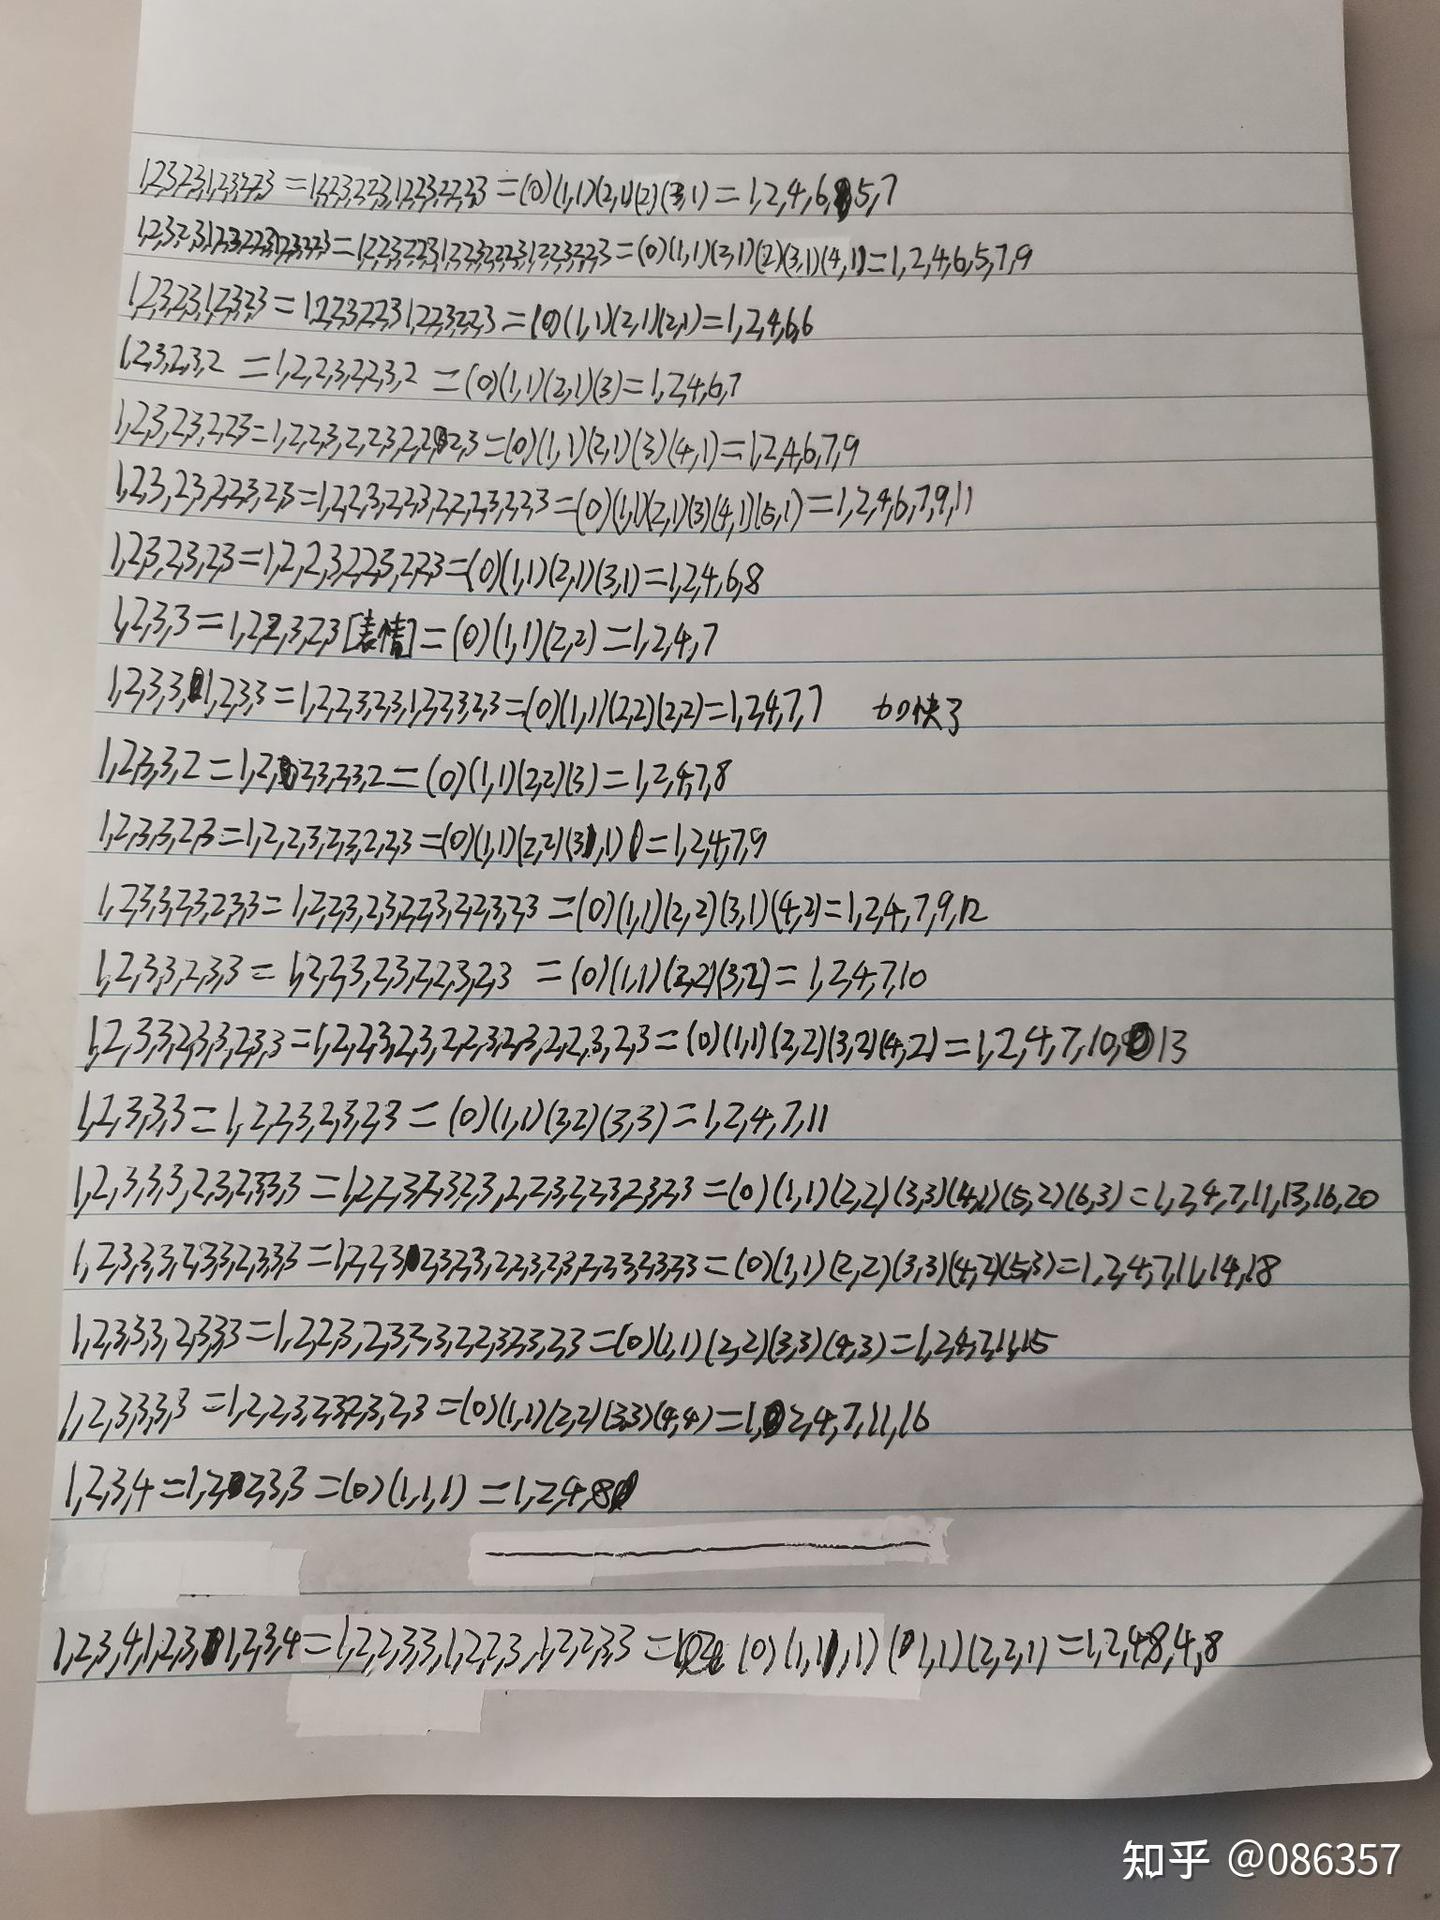 1,2,3,2,3,1,2,3,2,2,3 =1,2,2,3,2,2,3,1,2,2,3,2,2,2,3 =(0)(1,1)(2,1)(2)(3,1) = 1,2,4,6,5,7
=(0)(1,1)(2,1)(2)(3,1)(4,1)=1,2,4,6,5,7,9
1,2,3,2,3,1,2,3,2,3 = 1,2,2,3,2,2,3,1,2,2,3,2,2,3 =(0)(1,1)(2,1)(2,1)=1,2,4,6,6
1,2,3,2,3,2 =1,2,2,3,2,2,3,2 =(0)(1,1)(2,1)(3)=1,2,4,6,7
1,2,3,2,3,2,2,3=1,2,2,3,2,2,3,2,2,2,3=(0)(1,1)(2,1)(3)(4,1)=1,2,4,6,7,9
1,2,3,2,3,2,2,3,2,3=1,2,2,3,2,2,3,2,2,2,3,2,2,3=(0)(1,1)(2,1)(3)(4,1)(5,1)=1,2,4,6,7,9,11
1,2,3,2,3,2,3=1,2,2,3,2,2,3,2,2,3=(0)(1,1)(2,1)(3,1)=1,2,4,6,8
1,2,3,3=1,2,2,3,2,3[表情]=(0)(1,1)(2,2)=1,2,4,7
1,2,3,3,1,2,3,3=1,2,2,3,2,3,1,2,2,3,2,3=(0)(1,1)(2,2)(2,2)=1,2,4,7,7 加快了
1,2,3,3,2=1,2,2,3,2,3,2=(0)(1,1)(2,2)(3)=1,2,4,7,8
1,2,3,3,2,3=1,2,2,3,2,3,2,2,3=(0)(1,1)(2,2)(3,1)=1,2,4,7,9
1,2,3,3,2,3,2,3,3=1,2,2,3,2,3,2,2,3,2,2,3,2,3=(0)(1,1)(2,2)(3,1)(4,2)=1,2,4,7,9,12
1,2,3,3,2,3,3=1,2,2,3,2,3,2,2,3,2,3=(0)(1,1)(2,2)(3,2)=1,2,4,7,10
1,2,3,3,2,3,3,2,3,3=1,2,2,3,2,3,2,2,3,2,3,2,2,3,2,3=(0)(1,1)(2,2)(3,2)(4,2)=1,2,4,7,10,13
1,2,3,3,3=1,2,2,3,2,3,2,3=(0)(1,1)(2,2)(3,3)=1,2,4,7,11
1,2,3,3,3,2,3,2,3,3,3=1,2,2,3,2,3,2,3,2,2,3,2,2,3,2,3,2,3=(0)(1,1)(2,2)(3,3)(4,1)(5,2)(6,3)=1,2,4,7,11,13,16,20
1,2,3,3,3,2,3,3,2,3,3,3=1,2,2,3,2,3,2,3,2,2,3,2,3,2,2,3,2,3,2,3=(0)(1,1)(2,2)(3,3)(4,2)(5,3)=1,2,4,7,11,14,18
1,2,3,3,3,2,3,3,3=1,2,2,3,2,3,2,3,2,2,3,2,3,2,3=(0)(1,1)(2,2)(3,3)(4,3)=1,2,4,7,11,15
1,2,3,3,3,3=1,2,2,3,2,3,2,3,2,3=(0)(1,1)(2,2)(3,3)(4,4)=1,2,4,7,11,16
1,2,3,4=1,2,2,3,3=(0)(1,1,1)=1,2,4,8
1,2,3,4,1,2,3,1,2,3,4=1,2,2,3,3,1,2,2,3,1,2,2,3,3=(0)(1,1,1)(1,1)(2,2,1)=1,2,4,8,4,8
知乎 @086357